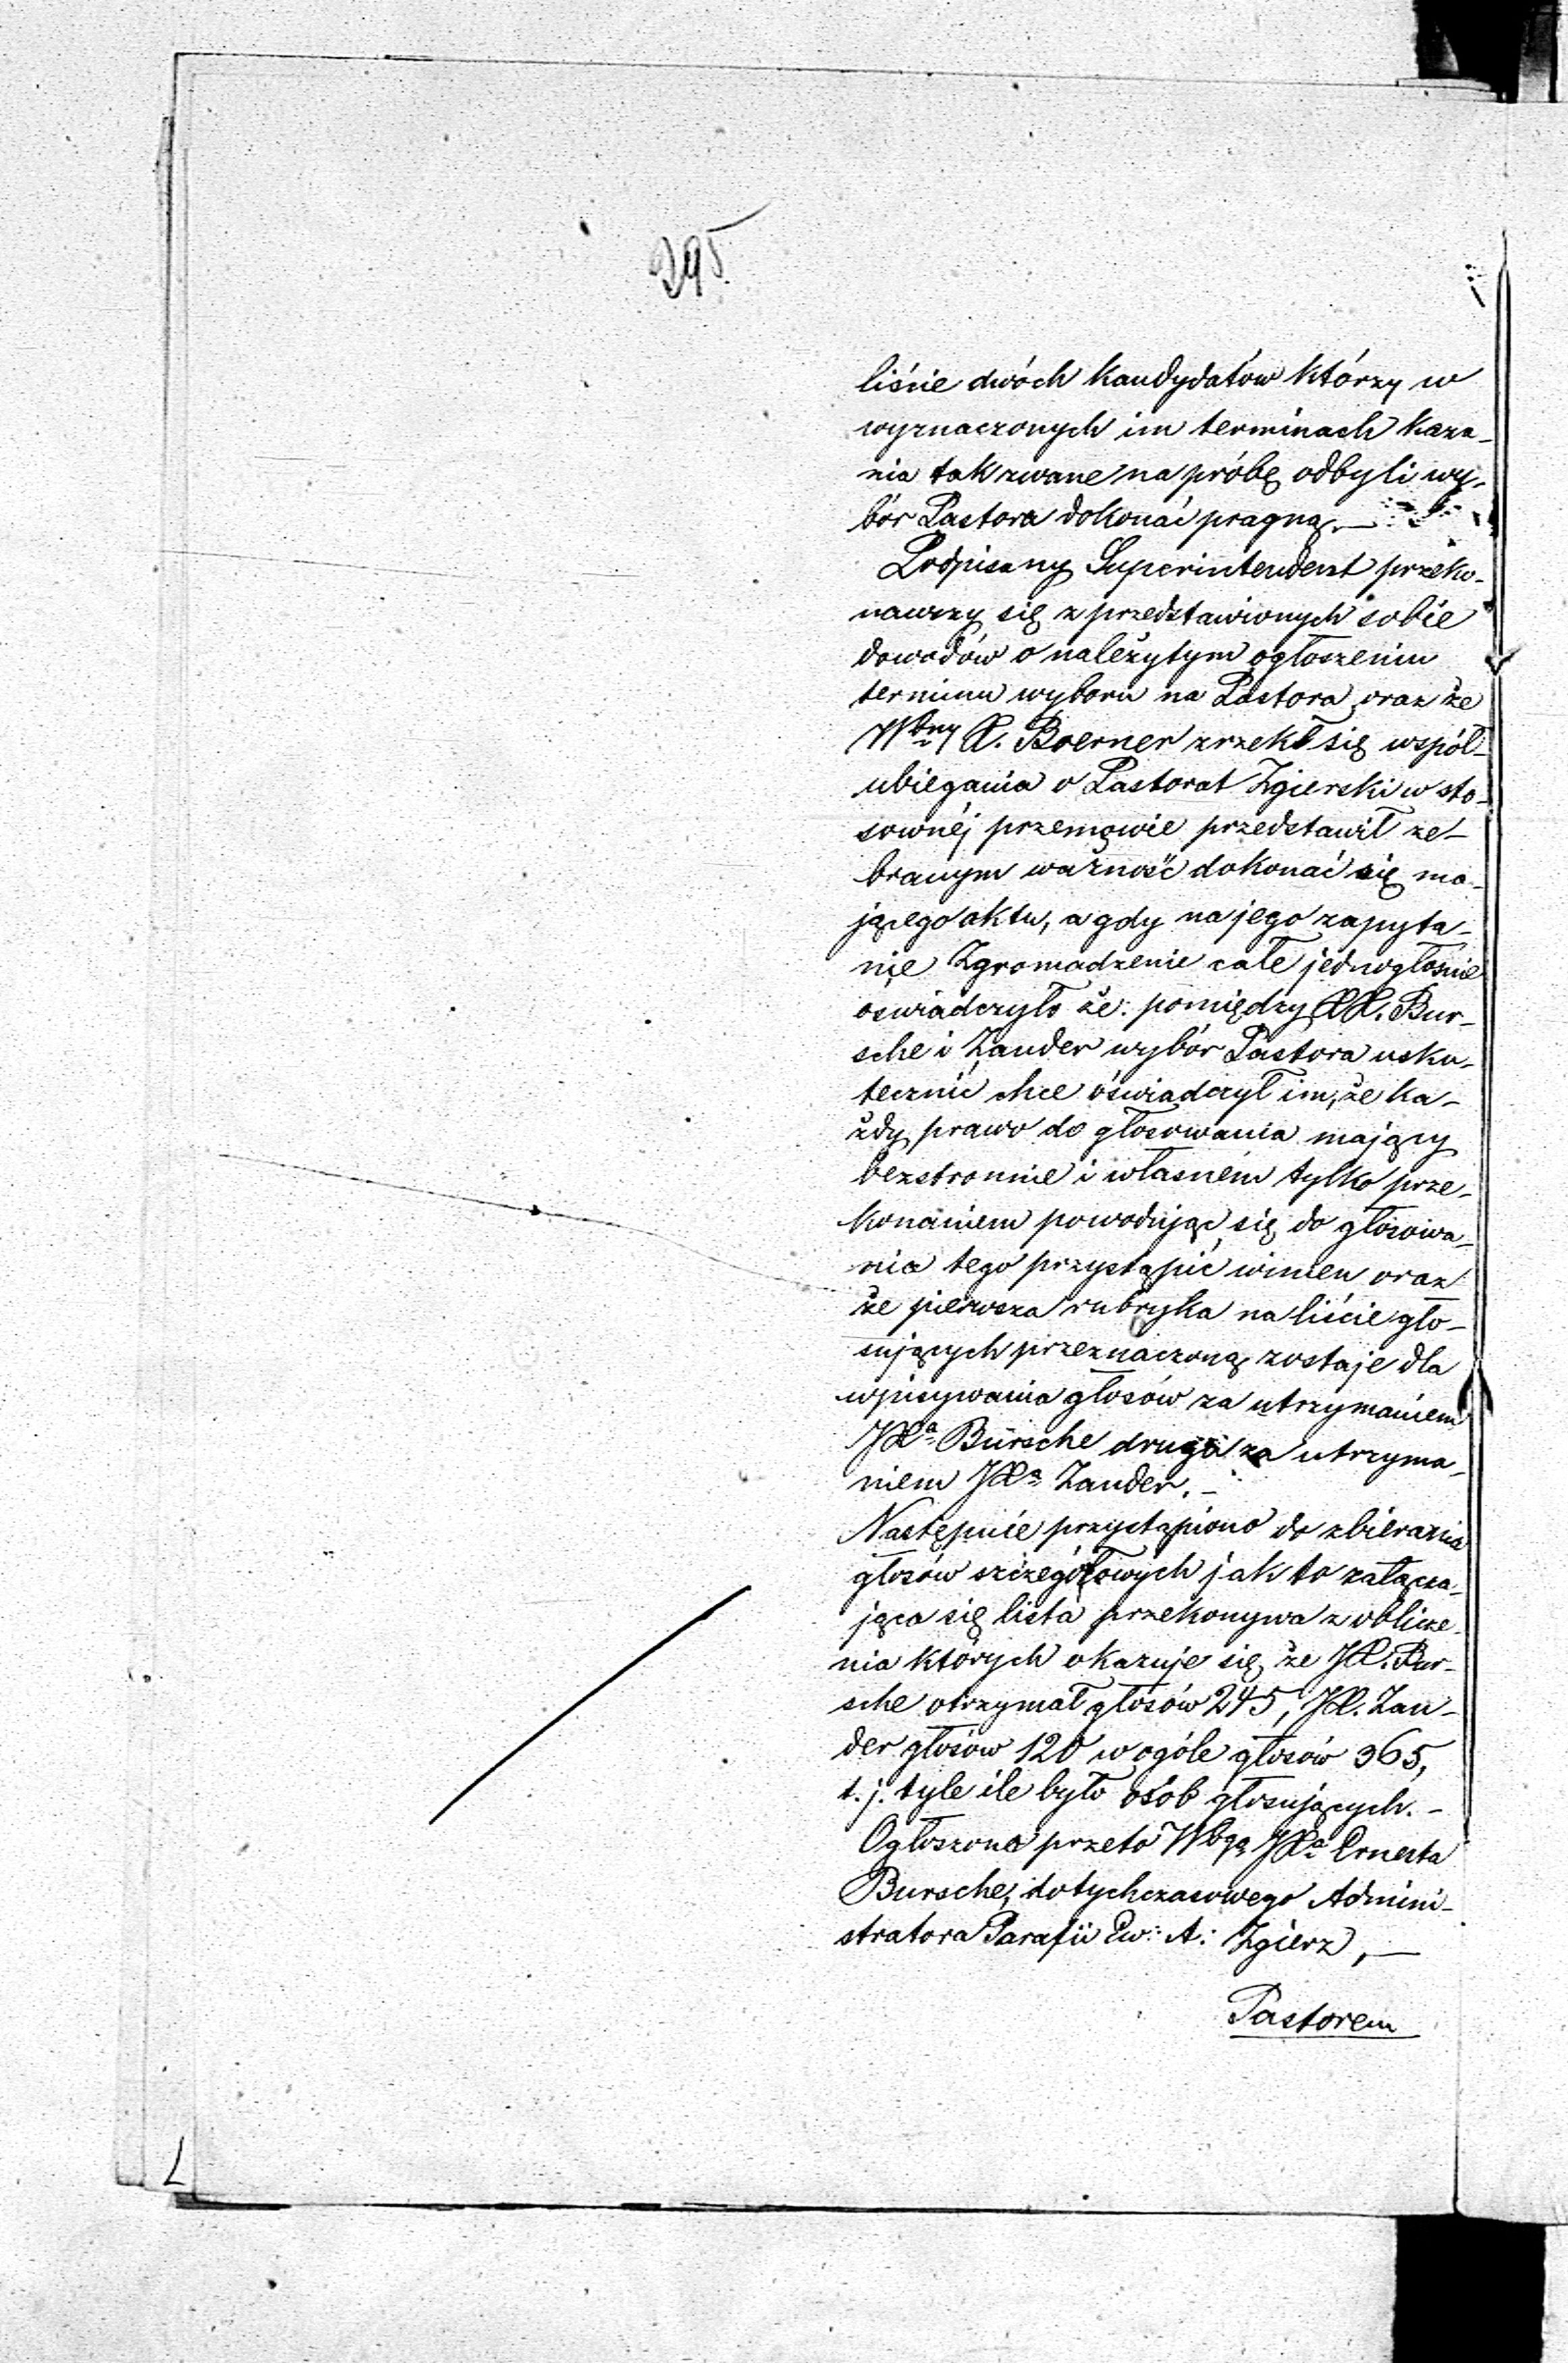 295.
liście dwóch kandydatów którzy w
wyznaczonych im terminach kaza-
nia tak zwane na próbę odbyli wy-
bór Pastora dokonać pragną. —
Podpisany Superintendent przeko-
nawszy się z przedstawionych sobie
dowodów o należytym ogłoszeniu
terminu wyboru na Pastora, oraz że
Wbny X. Boerner zrzekł się współ-
ubiegania o Pastorat Zgierski w sto-
sownéj przemowie przedstawił ze-
branym ważność dokonać się ma-
jącego aktu, a gdy na jego zapyta-
nie Zgromadzenie całe jednogłośnie
oświadczyło że: pomiędzy XX. Bur-
sche i Zander wybór Pastora usku-
tecznić chce oświadczył im, że ka-
żdy prawo do głosowania mający
bezstronnie i własném tylko prze-
konaniem powodując się do głosowa-
nia tego przystąpić winien oraz
że pierwsza rubryka na liście gło-
sujących przeznaczoną zostaje dla
wpisywania głosów za utrzymaniem
JXa Bursche druga za utrzyma-
niem JXa Zander. —
Następnie przystąpiono do zbierania
głosów szczegółowych jak to załącza-
jąca się lista przekonywa z oblicze-
nia których okazuje się że JX. Bur-
sche otrzymał głosów 245, JX. Zan-
der głosów 120 w ogóle głosów 365,
t. j. tyle ile było osób głosujących. —
Ogłoszono przeto Wbgo JXa Ernesta
Bursche, dotychczasowego Admini-
stratora Parafii Ew: A: Zgierz, —
Pastorem